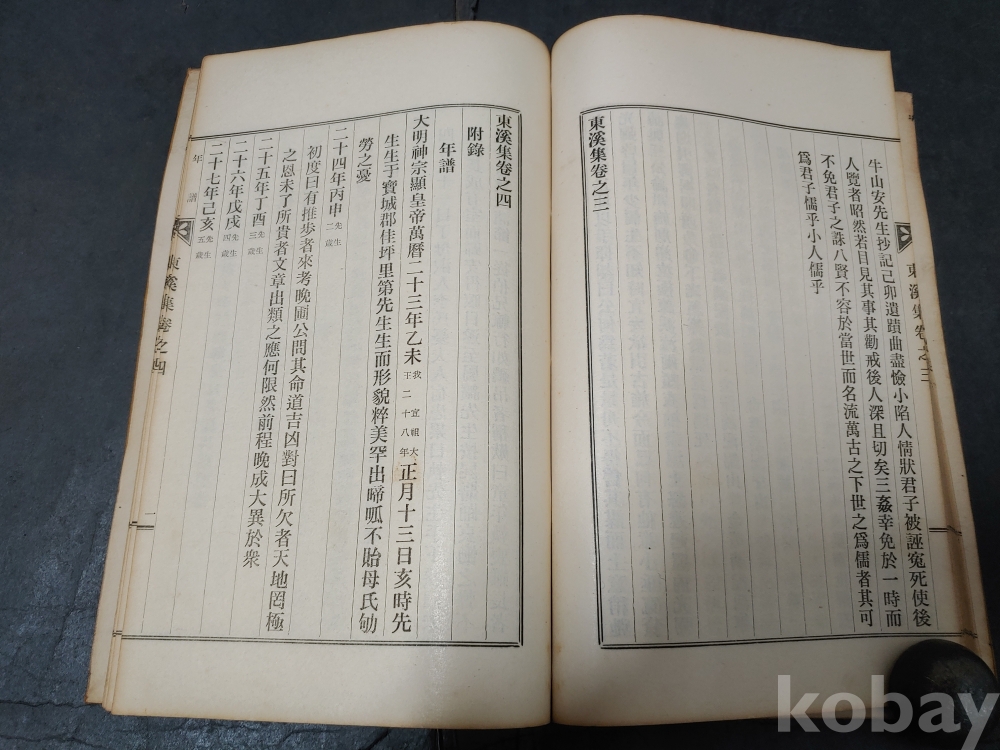 牛山安先生抄記己卯遺蹟曲盡憸小陷人情狀君子被誣寃死使後
人覽者昭然若目見其事其勸戒後人深且切矣三姦幸免於一時而
不免君子之誅八賢不容於當世而名流萬古之下世之爲儒者其可
爲君子儒乎小人儒乎
東溪集卷之三
東溪集卷之三
東溪集卷之四
附錄
年譜
大明神宗顯皇帝萬曆二十三年乙未我宣祖大王二十八年正月十三日亥時先
生生于寶城郡佳坪里第先生生而形貌粹美罕出啼呱不貽母氏劬
勞之憂
二十四年丙申先生二歲
初度日有推步者來考晚圃公問其命道吉凶對曰所欠者天地罔極
之恩未了所貴者文章出類之應何限然前程晚成大異於衆
二十五年丁酉先生三歲
二十六年戊戌先生四歲
二十七年己亥先生五歲
年譜
東溪集卷之四
一
kobay